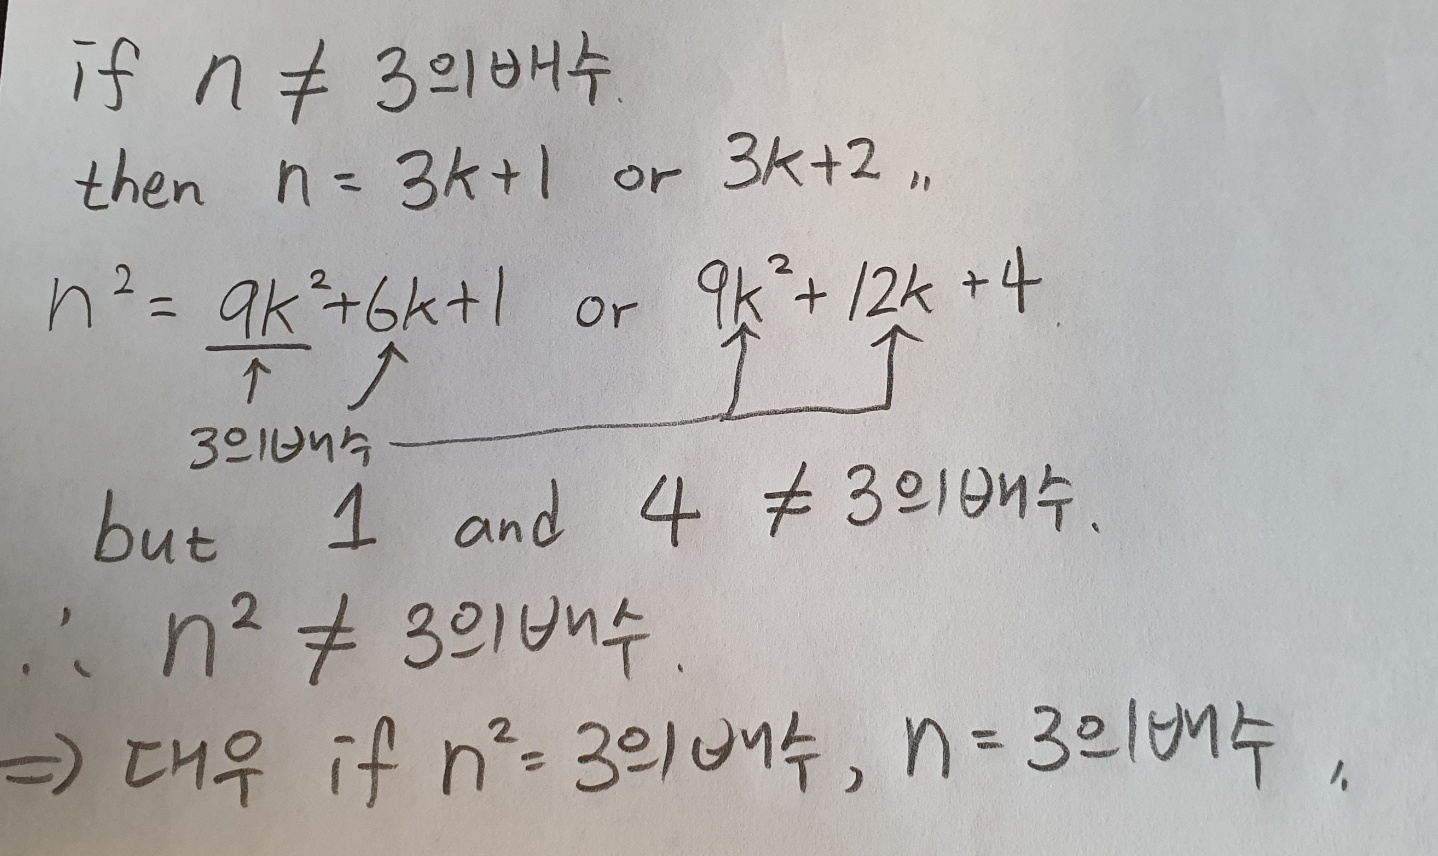 if n ≠ 3의배수.
then n = 3k+1 or 3k+2 〃
n² = 9k²+6k+1 or 9k²+12k+4.
↑ ↗ ↑ ↑
3의배수
but 1 and 4 ≠ 3의배수.
∴ n² ≠ 3의배수.
⇒ 대우 if n² = 3의배수, n = 3의배수 〃